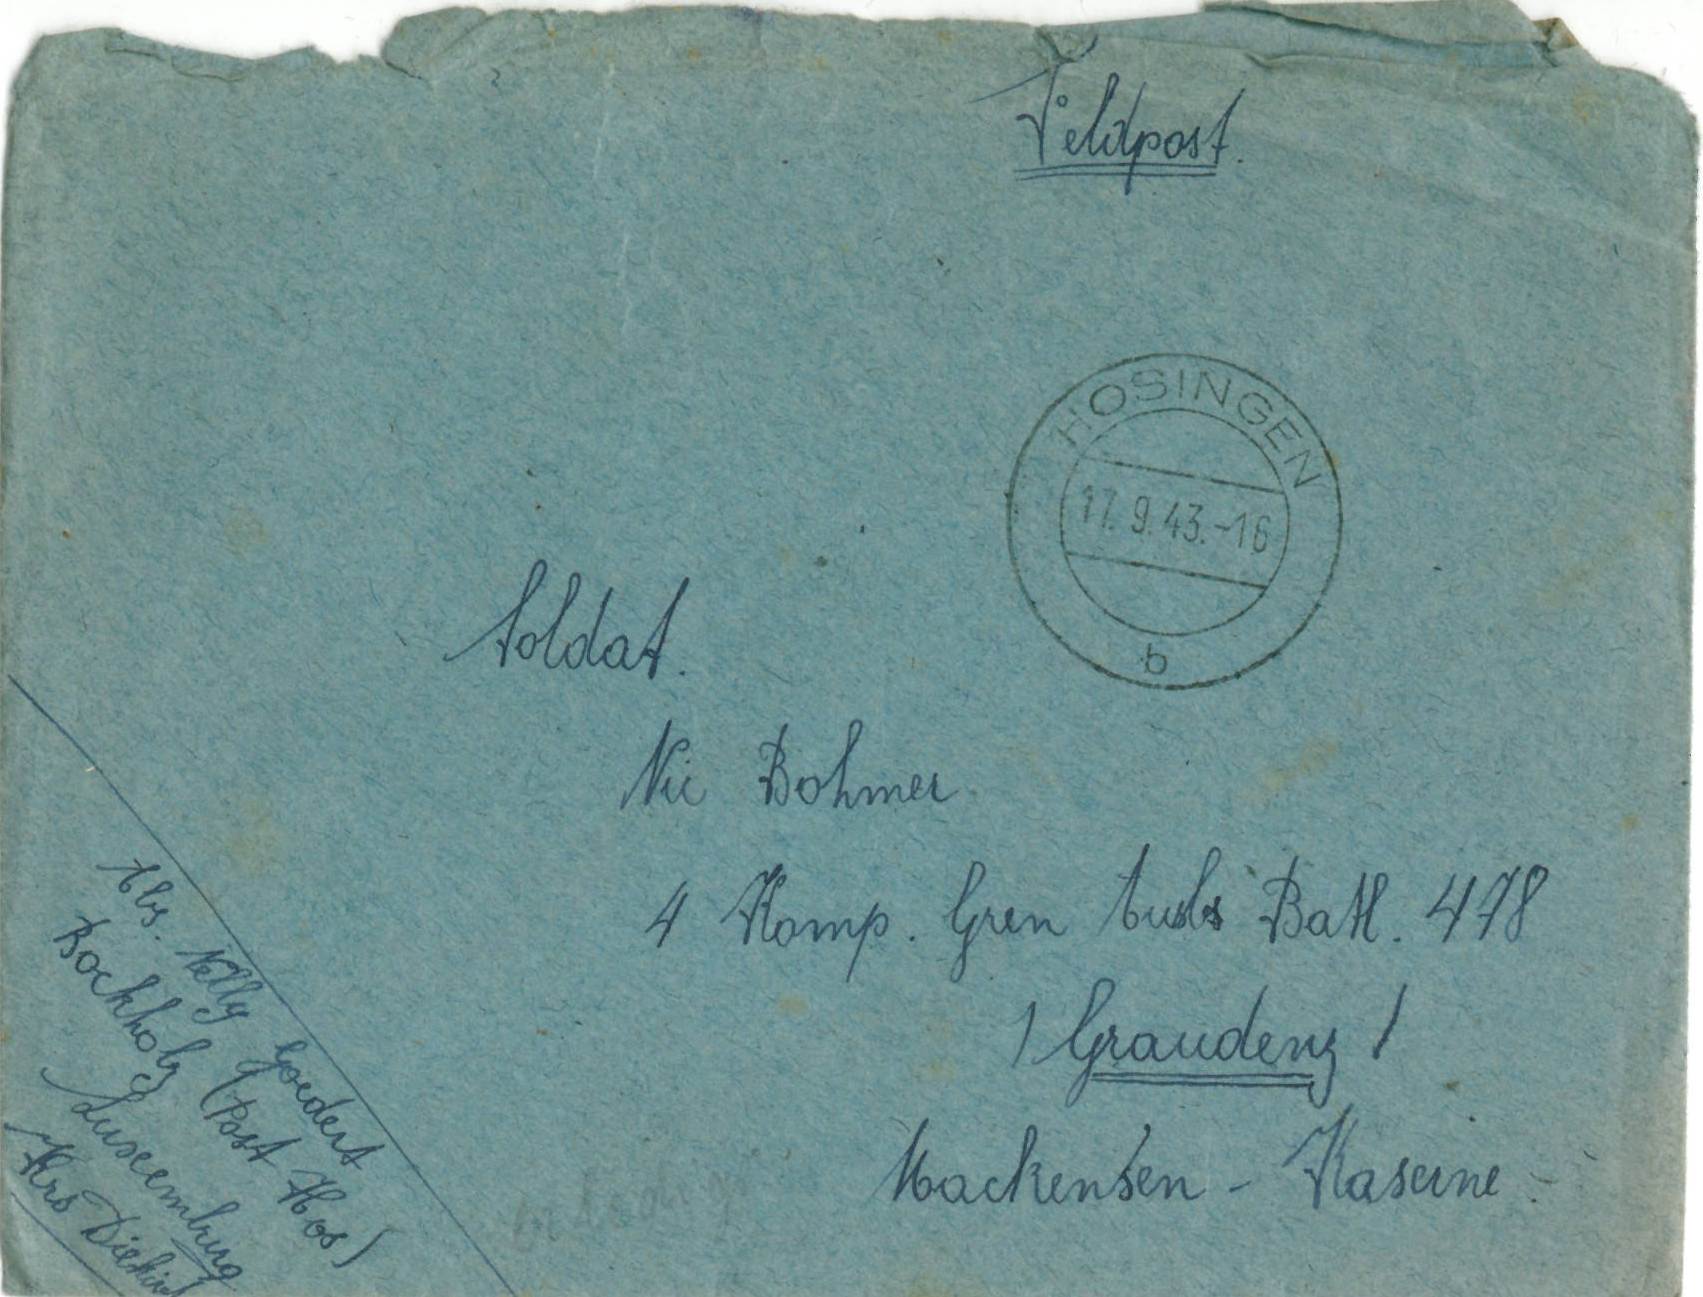 Feldpost.
HOSINGEN
17.9.43.-16
b
Soldat.
Nic Bohmer
4 Komp. Gren Ausb Batl. 478
/ Graudenz /
Mackensen - Kaserne.
Abs. Nelly Goedert
Bockholz (Post Hos)
Luxemburg
Krs Diekirch